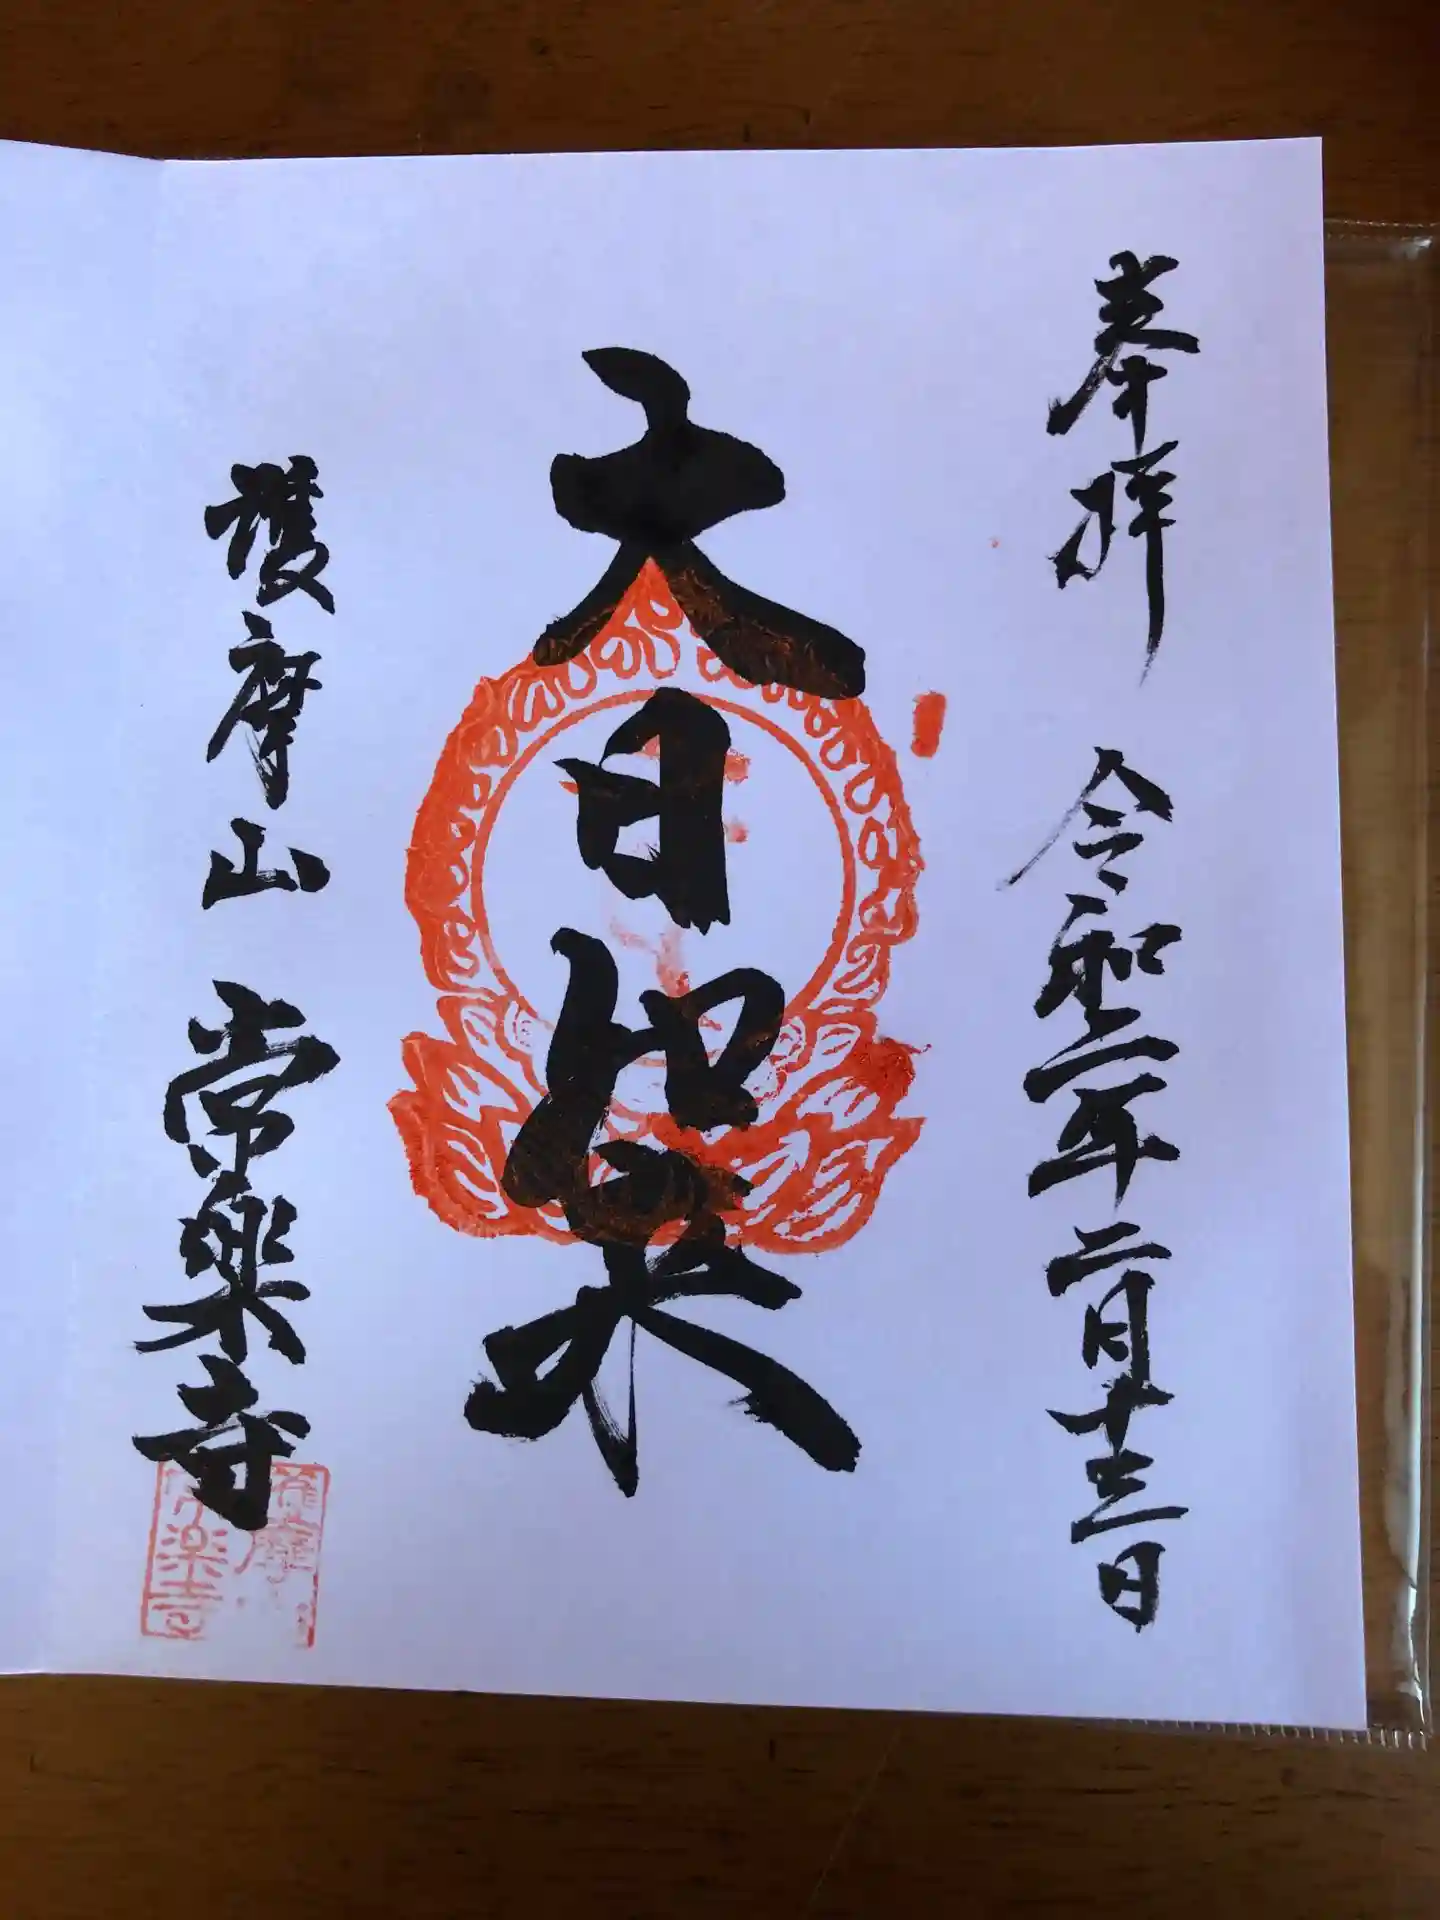 奉拝 令和二年二月十三日
大日如来
護摩山 常楽寺